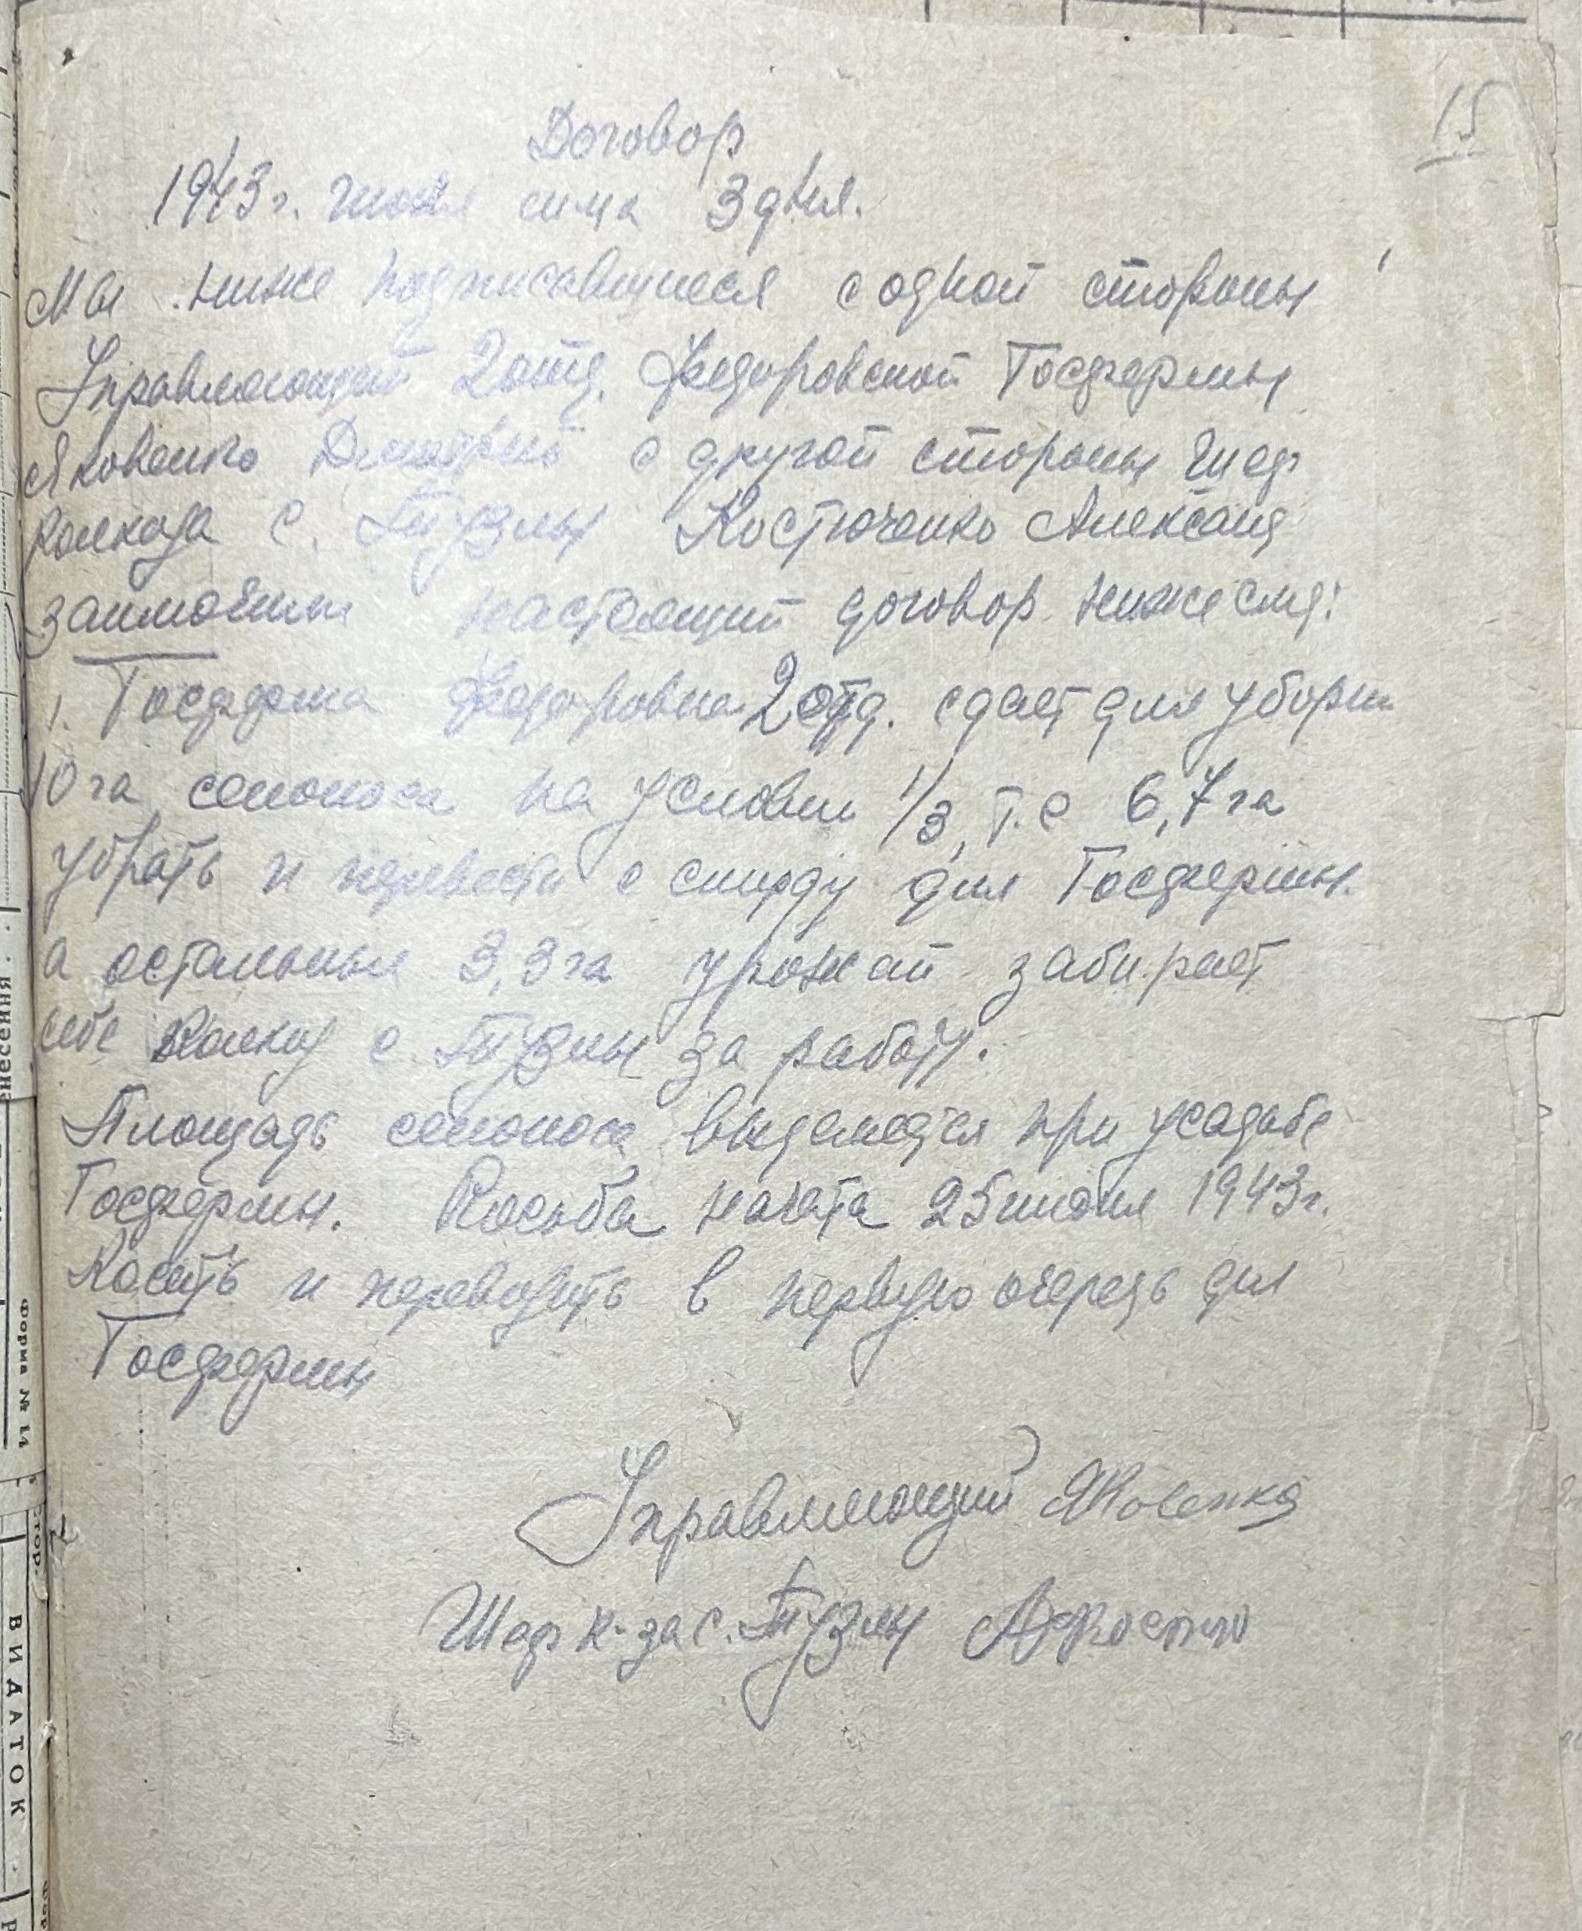 15
Договор
1943г. июня сима 3 дня.
Мы ниже подписавшиеся с одной стороны
Управляющий 2 отд. Федоровской Госфермы
Яковенко Дмитрий с другой стороны Шеф
колхоза с. Тузлы Костюченко Александ
заключили настоящий договор нижеслед:
1. Госферма Федоровка 2 отд. сдает для уборки
10 га сенокоса на условии 1/3, т.е 6,7 га
убрать и перевести в скирду для Госфермы.
а остальные 3,3 га урожай забирает
себе Колхоз с. Тузлы за работу.
Площадь сенокоса выделяется при усадьбе
Госфермы. Косьба начата 25 июня 1943г.
Косить и перевозить в первую очередь для
Госфермы
Управляющий Яковенко
Шеф к-за с. Тузлы АКостю
Форма № 14
стор.
ВИДАТОК